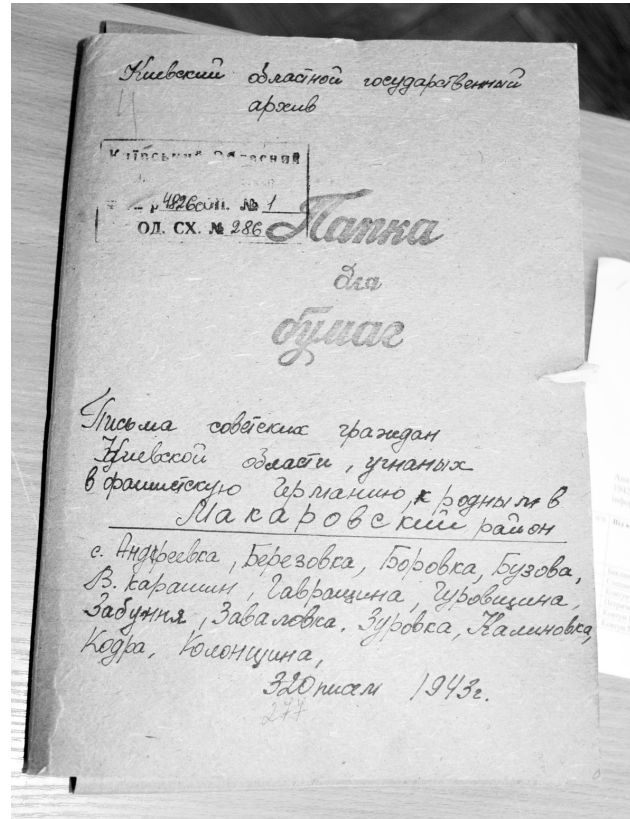 Киевский областной государственный
архив
Київський Обласний
р 4826 оп. № 1
ОД. СХ. № 286
Папка
для
бумаг
Письма советских граждан
Киевской области, угнаных
в фашистскую Германию, к родным в
Макаровский район
с. Андреевка, Березовка, Боровка, Бузова,
В. Карашин, Гавращина, Гуровщина,
Забуяня, Заваловка, Зуровка, Калиновка,
Кодра, Колонщина,
320 писем 1943г.
277